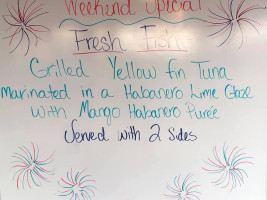 Weekend Special
Fresh Fish
Grilled Yellow fin Tuna
marinated in a Habanero Lime Glaze
with Mango Habanero Purée
Served with 2 Sides